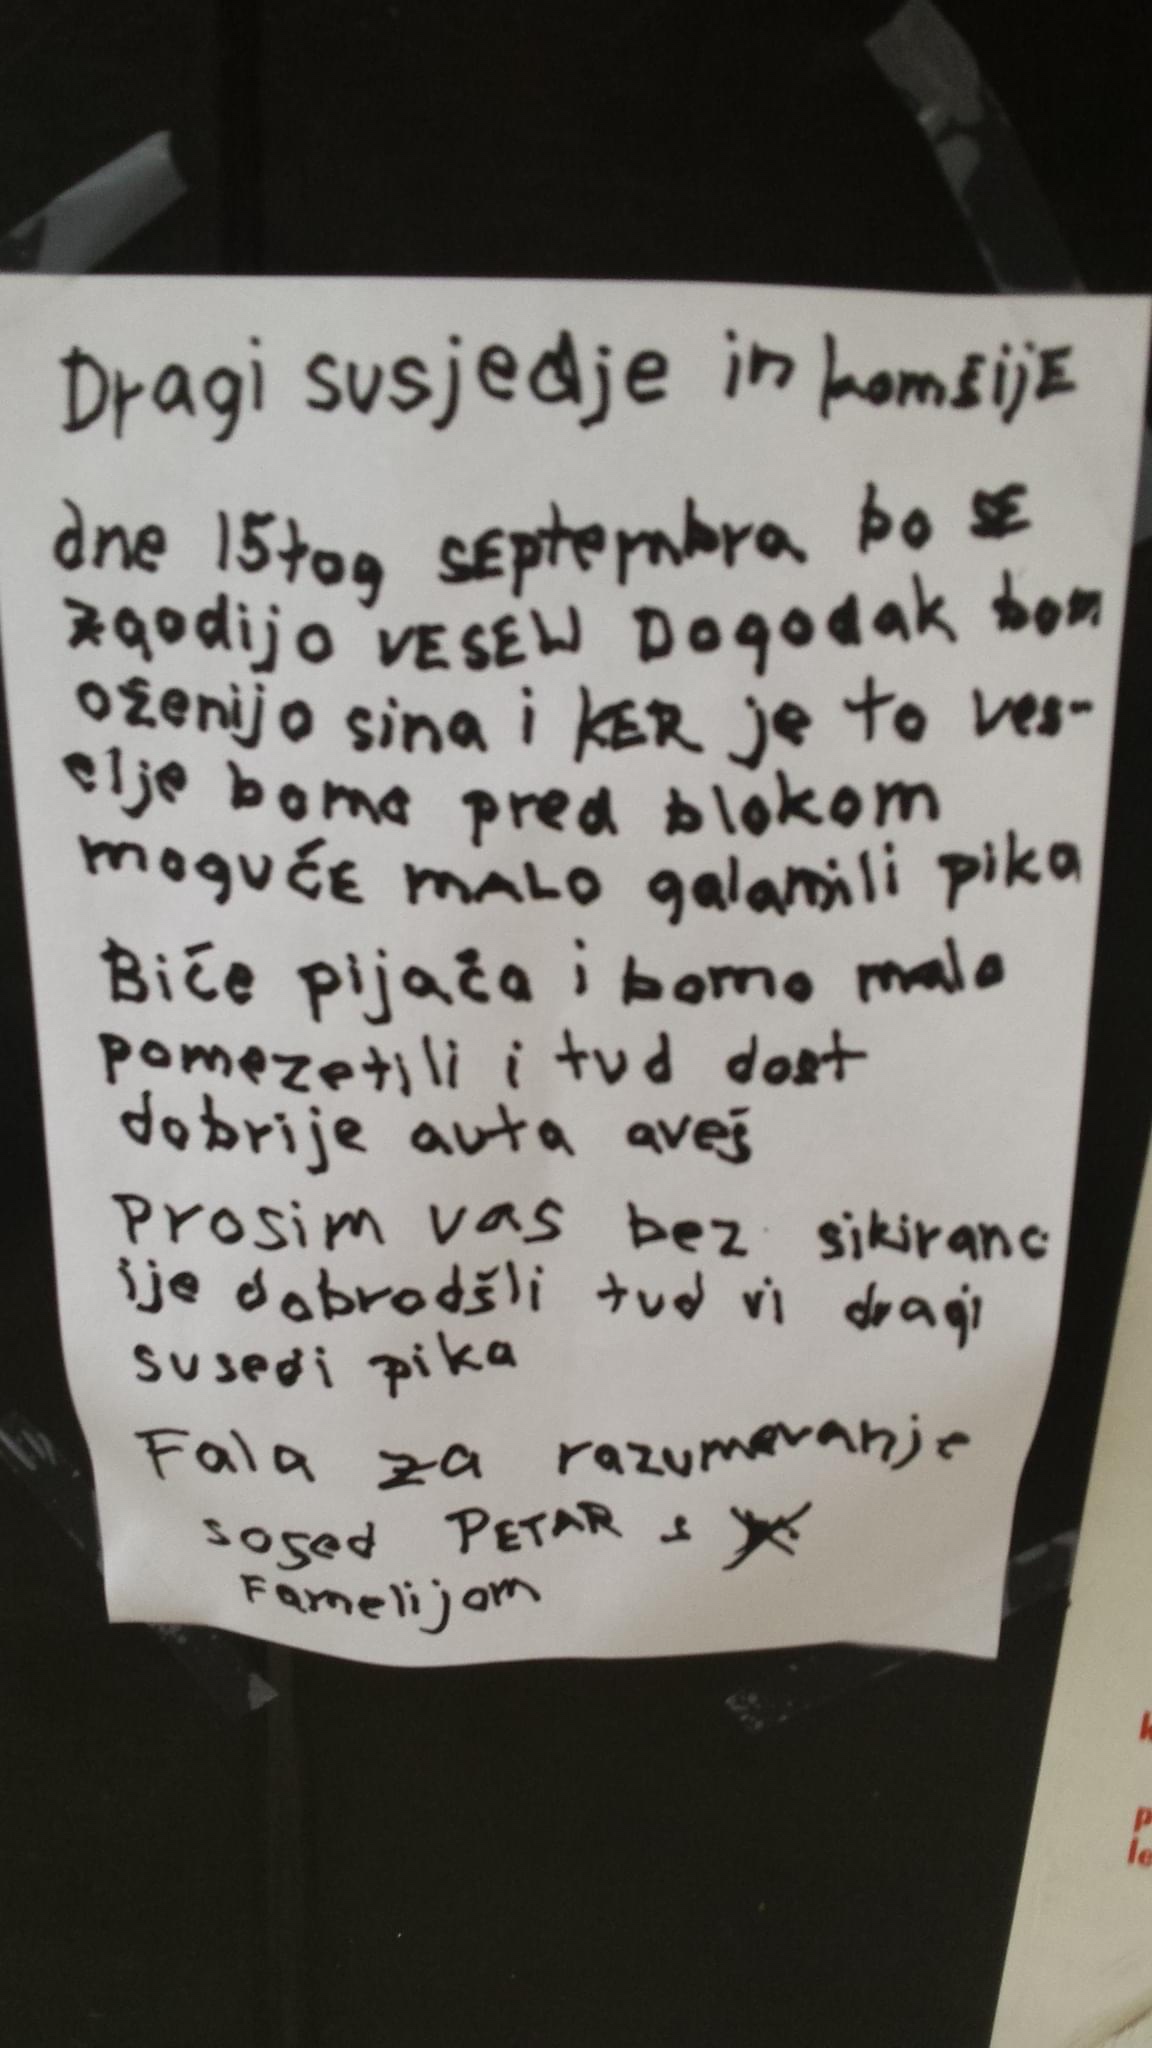 Dragi susjedje in komšije
dne 15tog SEptembra bo SE
zgodijo VESELI Dogodak bom
oženijo sina i KER je to ves-
elje bomo pred blokom
moguče MALO galamili pika
Biče pijača i bomo malo
pomezetili i tud dost
dobrije auta aveš
Prosim vas bez sikiranc
ije dobrodšli tud vi dragi
susedi pika
Fala za razumevanje
sosed PETAR s
Famelijom
k
p
le